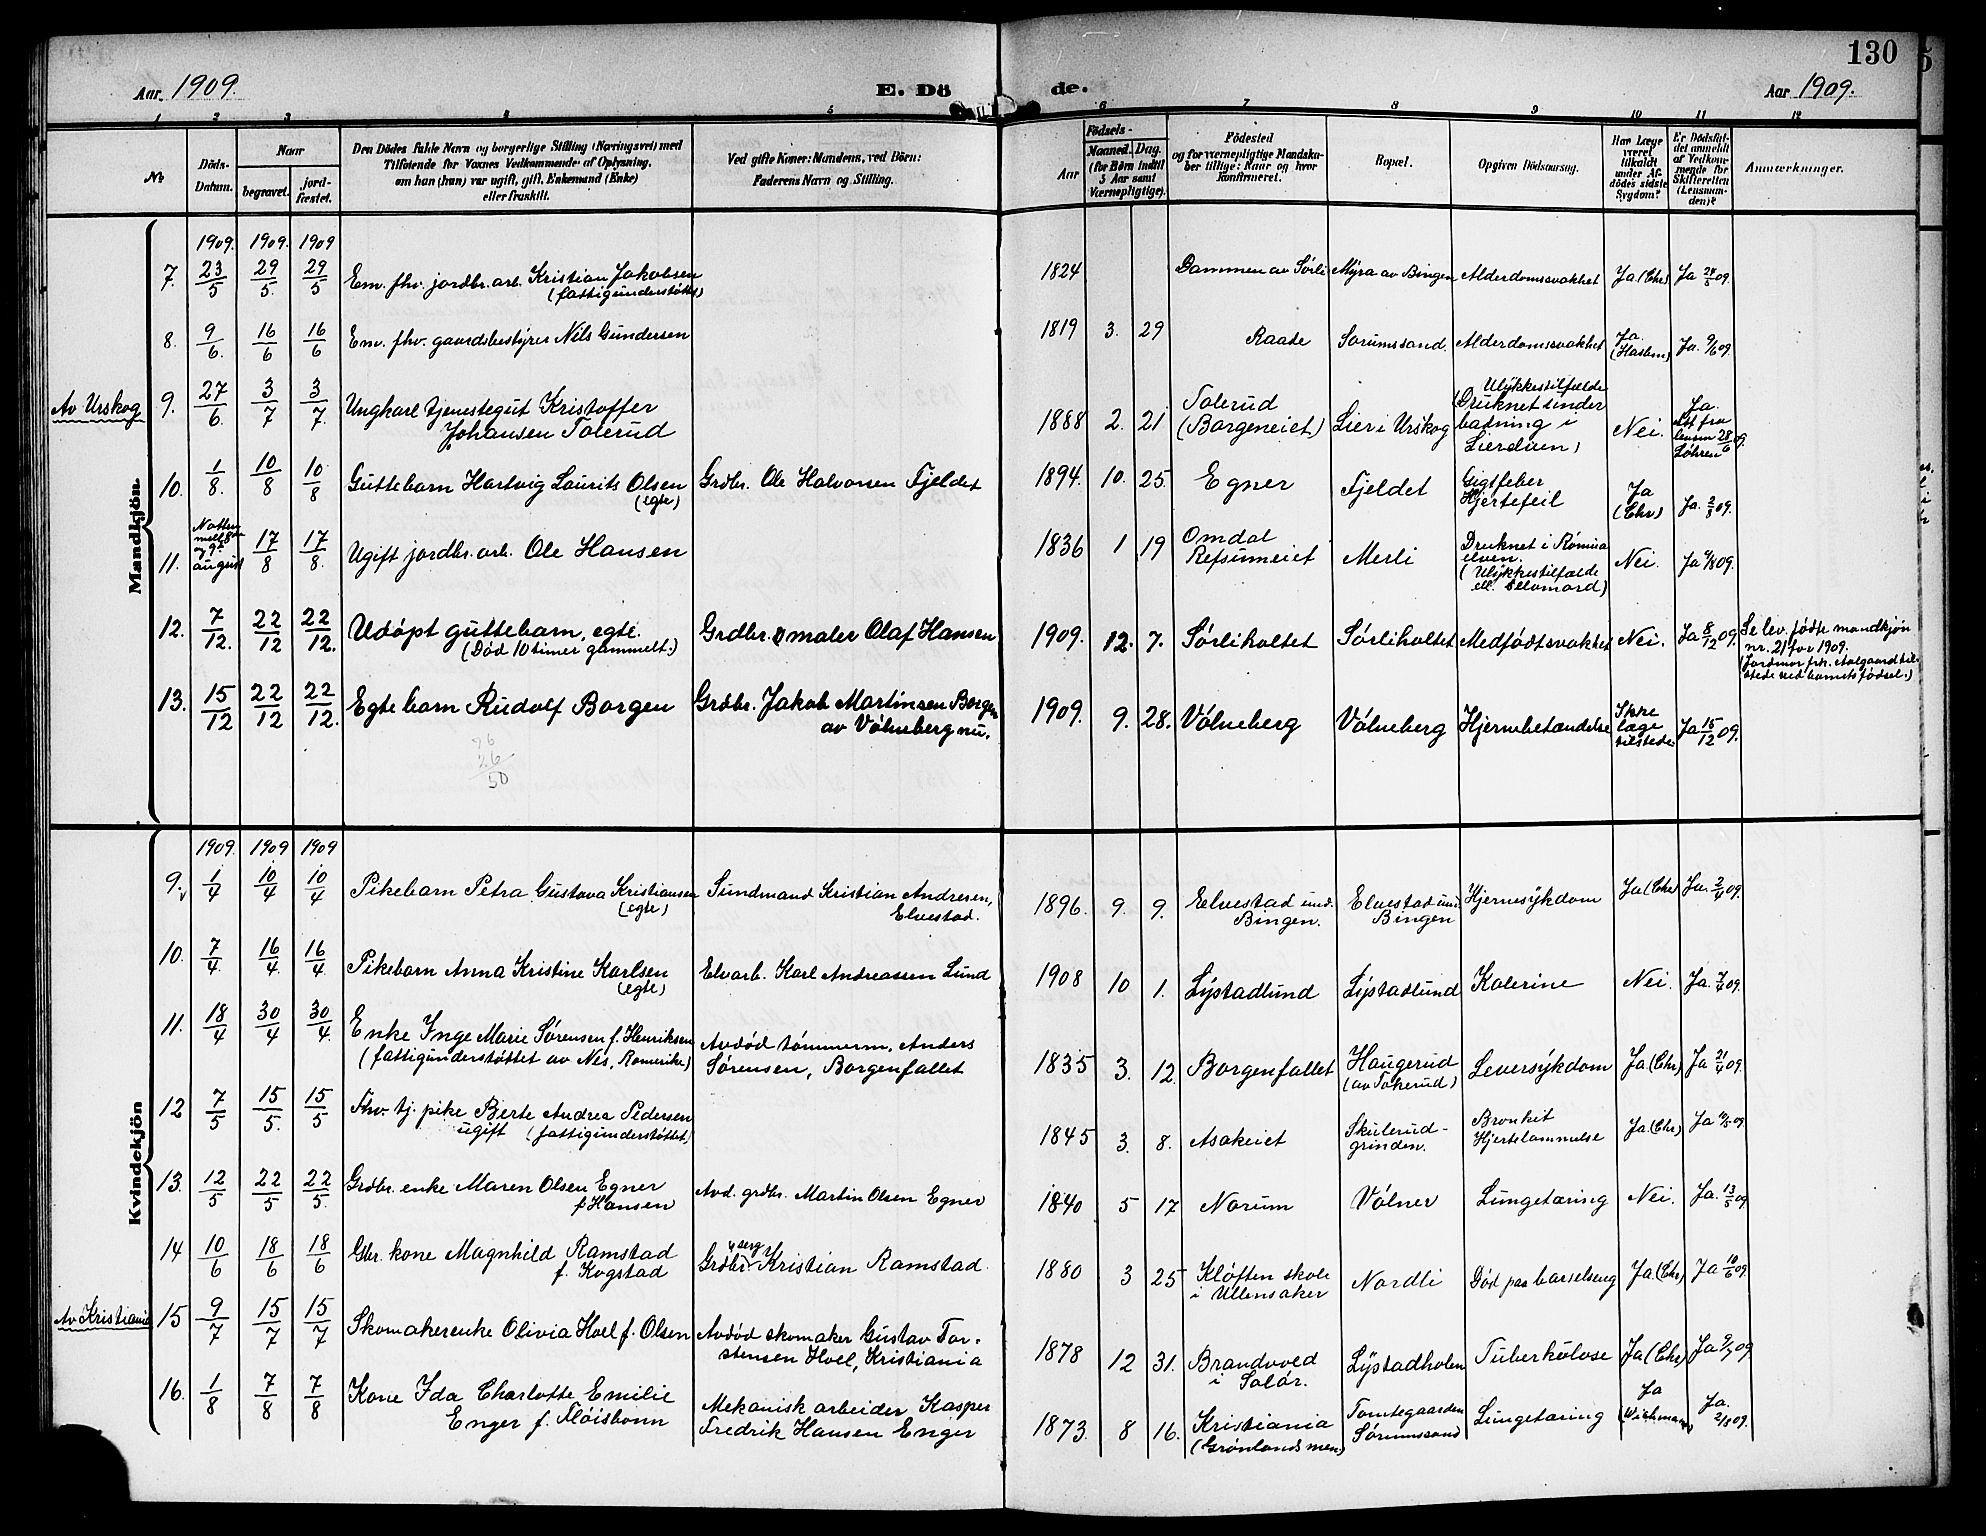 130
Aar 1909.
E. Döde.
Aar 1909.
1 2 3 4 5 6 7 8 9 10 11 12
No
Döds-Datum.
Naar
begravet.
jord-fæstet.
Den Dödes fulde Navn og borgerlige Stilling (Næringsvei) med
Tilføiende for Voxnes Vedkommende af Oplysning,
om han (hun) var ugift, gift, Enkemand (Enke)
eller fraskilt.
Ved gifte Koner: Mandens, ved Börn:
Faderens Navn og Stilling.
Födsels-
Aar
Maaned. Dag.
(for Börn indtil
5 Aar samt
Værnepligtige).
Födested
og for værnepligtige Mandska-
ber tillige: Naar og hvor
konfirmeret.
Bopæl.
Opgiven Dödsaarsag.
Har Læge
været
tilkaldt
under Af-
dödes sidste
Sygdom?
Er Dödsfal-
det anmeldt
af Vedkom-
mende for
Skifteretten
(Lensman-
den)?
Anmærkninger.
Mandkjön.
1909. 1909. 1909
7. 23/5 29/5. 29/5 Em. fhv. jordbr. arb. Kristian Jakobsen
(fattigunderstøttet)
1824 Dammen av Sørli Myra av Bingen Alderdomssvakhet Ja (Chr) Ja 24/5 09.
8. 9/6. 16/6 16/6 Em. fhv. gaardsbestyrer Nils Gundersen
1819 3. 29 Raade Sørumssand. Alderdomssvakhet Ja. (Haslem) Ja. 9/6 09.
Av Urskog
9. 27/6. 3/7 3/7. Ungkarl tjenestegut Kristoffer
Johansen Tolerud
1888 2. 21 Tolerud (Borgeneiet) Lier i Urskog Ulykkestilfælde (Druknet under badning i Lierduen) Nei. Ja. Att fra lensm Løhren 28/6 09.
10. 1/8. 10/8 10/8 Guttebarn Hartvig Laurits Olsen
(egte)
Grdbr. Ole Halvorsen Fjeldet
1894. 10. 25. Egner Fjeldet Gigtfeber Hjertefeil Ja (Chr) Ja. 2/8 09.
11. Natten mell. 8de og 9de august 17/8 17/8. Ugift jordbr. arb. Ole Hansen
1836 1 19 Omdal Refsumeiet Merli Druknet i Rømua elven. (Ulykkestilfælde ell. selvmord) Nei. Ja 9/8 09.
12. 7/12. 22/12 22/12. Udøpt guttebarn, egte.
(Død 10 timer gammelt.)
Grdbr. & maler Olaf Hansen
1909. 12. 7. Sørliholtet Sørliholtet Medfødt svakhet Nei. Ja 8/12 09. Se lev. fødte mandkjøn
nr. 21 for 1909.
(Jordmor frk. Aalgaard til-
stede ved barnets fødsel.)
13. 15/12 22/12 22/12. Egte barn Rudolf Borgen
Grdbr. Jakob Martinsen Borgen
av Vølneberg nu.
1909. 9. 28. Vølneberg Vølneberg Hjernebetændelse Ikke læge tilstede Ja 15/12 09.
26
50
Kvindekjön
1909. 1909 1909
9. 1/4 10/4 10/4 Pikebarn Petra Gustava Kristiansen
(egte)
Sundmand Kristian Andresen,
Elvestad.
1896. 9. 9. Elvestad und. Bingen. Elvestad und. Bingen Hjernesykdom Ja (Chr) Ja. 2/4 09.
10. 7/4. 16/4. 16/4. Pikebarn Anna Kristine Karlsen
(egte)
Elvarb. Karl Andreassen Lund
1908 10 1. Lystadlund Lystadlund Kolerine Nei. Ja. 7/4 09.
11. 18/4 30/4 30/4. Enke Inge Marie Sørensen f. Henriksen
(fattigunderstøttet av Nes, Romerike)
Avdød tømmerm. Anders
Sørensen, Borgenfallet
1835 3. 12. Borgenfallet Haugerud (av Tokerud) Leversykdom Ja (Chr) Ja 21/4 09.
12 7/5 15/5. 15/5 Fhv. tj. pike Berte Andrea Pedersen
ugift (fattigunderstøttet)
1845 3. 8. Asakeiet Skulerud-grinden. Bronkit Hjertelammelse Ja. (Chr) Ja 10/5 09
13. 12/5 22/5 22/5. Grdbr. enke Maren Olsen Egner
f. Hansen
Avd. grdbr. Martin Olsen Egner
1840 5 17 Norum Vølner Lungetæring Nei. Ja. 13/5 09
14 10/6 18/6 18/6 Gbr. kone Magnhild Ramstad
f. Kogstad
Grdbr. Kristian Ramstad.
1880 3 25 Kløften skole i Ullensaker Nordli Død paa barselseng Ja (Chr) Ja 10/6 09
Av Kristiania
15 9/7 15/7 15/7 Skomakerenke Olivia Hoel f. Olsen
Avdød skomaker Gustav Tor-
stensen Hoel, Kristiania
1878 12 31. Brandvoed i Solør. Lystadholen Tuberkulose Ja (Chr) Ja 9/7 09
16. 1/8 7/8 7/8 Kone Ida Charlotte Emilie
Enger f. Fløisbonn
Mekanisk arbeider Kasper
Fredrik Hansen Enger
1873. 8 16. Kristiania (Grønlands men) Tomtegaarden Sørumssand Lungetæring Ja (Wichmann) Ja. 2/8 09.